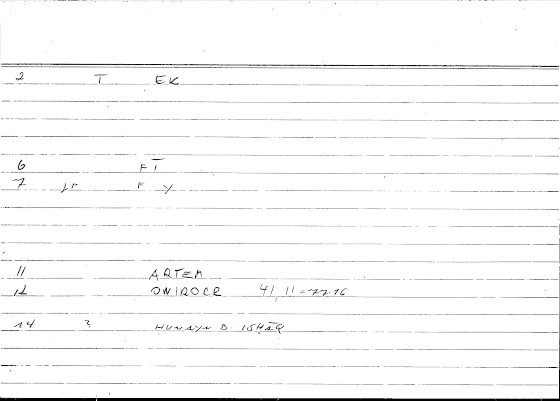 2 T EK
6 FT
7 F Y
11 ARTEM
12 ONIROCR 41, 11
14 ? HUNAYN B ISHĀQ